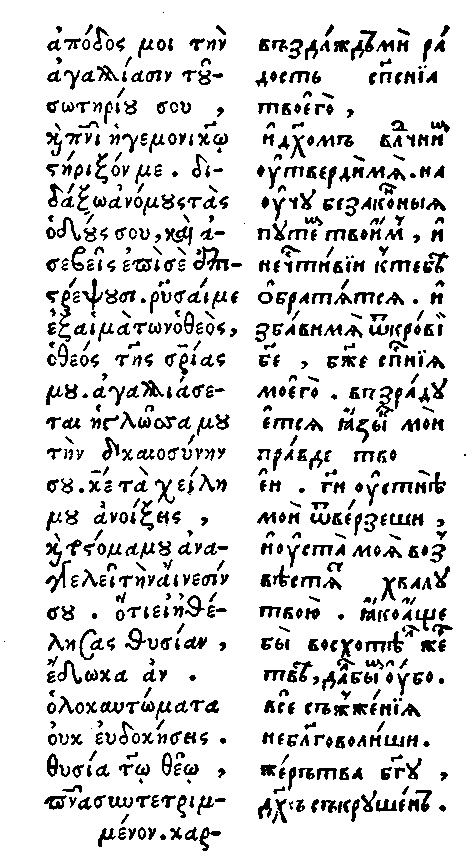 ἀπόδος μοι τὴν
ἀγαλλίασιν τȣ͂-
σωτηρίȣ σου ,
κ̀ πν͞ι ἡγεμονικῷ
ϛήριξόν με . δι-
δάξωἀνόμȣςτὰς
ὁδȣ́ς σου, καὶ ἀ-
σεβεῖς ἐπὶσὲ ἐπι-
ϛρέψȣσι . ῥῦσαίμε
ἐξαἱμάτωνὁθεὸς,
ὁθεός τῆς σρ͞ίας
μȣ . ἀγαλλιάσε-
ται ἡγλῶσσα μȣ
τὴν δικαιοσύνην
σȣ . κ͞ε τὰ χείλη
μȣ ἀνοίξεις ,
κ̀ τϛόμαμȣ ἀνα-
γγελεῖτὴναἴνεσίν
σȣ . ὅτιεἰἠθέ-
λησας θυσίαν ,
ἔδωκα ἄν .
ὁλοκαυτώματα
ουκ ευδοκήσεις .
θυσία τῷ θεῷ ,
πν͞ασωτετριμ-
μένον . καρ-
въздаждьми ра́
дость сп҃сенїа
твоего̀ ,
и҆дх҃омъ влⷣчниⷨ
оу҆твердимѧ . на
оу҆чу беззако́нныѧ
путеⷨ твои҆ⷨ , и҆
нечⷭ҇тивїи к̾тебѣ
ѡ҆братѧ́тсѧ . и҆
збавимѧ ѿкрові́
бж҃е , бж҃е сп҃нїѧ
моего̀ . възра́ду
етсѧ ꙗ҆зы́ⷦ мо́и
пра́вде тво
е́и . гд҃и оу҆стнѣ́
мои̑ ѿве́рзеши ,
и҆оу҆ста̀ моѧ̀ воⷥ
вѣстѧⷮ хвалу
твою̀ . ꙗ҆коа҆́ще
бы̀ восхотѣⷧ҇ жеⷬ҇
твѣ , даⷧ҇бы́ⷨ оу҆́бо .
всѐ съжже́нїѧ
небл҃говоли́ши .
же́рътва бг҃у ,
дх҃ъ съкруше́нъ .